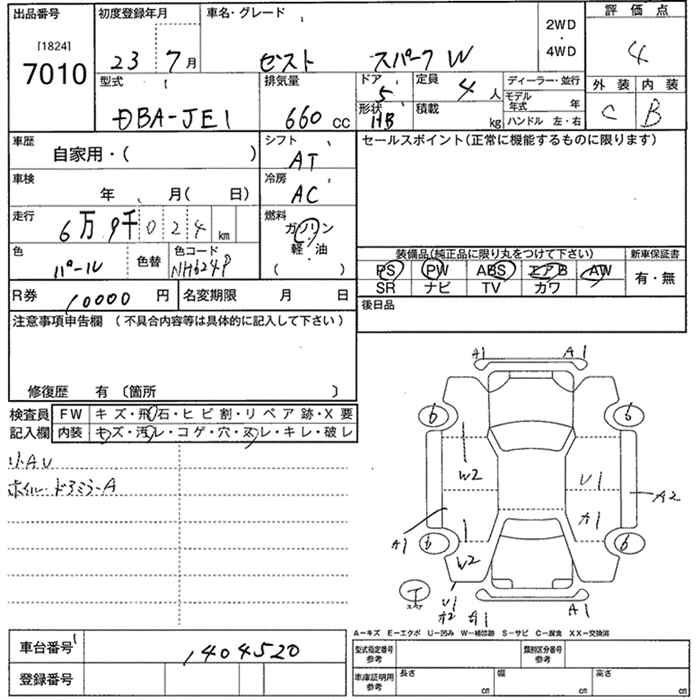 出品番号 初度登録年月 車名・グレード 2WD・4WD 評価点
[1824]
7010 23 7月 ゼスト スパーク W 4
型式 排気量 ドア 定員 ディーラー・並行 外装 内装
DBA-JE1 660 cc 5 4 人 モデル年式 年 C B
形状 HB 積載 kg ハンドル 左・右
車歴 自家用・( ) シフト AT セールスポイント(正常に機能するものに限ります)
車検 年 月( 日) 冷房 AC
走行 6万9千024 km 燃料 ガソリン・軽・油 ( )
色 パール 色替 色コード NH624P
装備品(純正品に限り丸をつけて下さい) 新車保証書
PS PW ABS エアB AW 有・無
SR ナビ TV カワ
R券 10000 円 名変期限 月 日 後日品
注意事項申告欄 (不具合内容等は具体的に記入して下さい)
修復歴 有 〔箇所 〕
検査員 FW キズ・飛石・ヒビ割・リペア跡・X要
記入欄 内装 キズ・汚レ・コゲ・穴・スレ・キレ・破レ
リ.AU
ホイル・ドアミラーA
A1 A1
6 6
W2 U1
A2
A1 A1
6 6
W2
T
スペア
U1
A2 A1 A1
A−キズ E−エクボ U−凹み W−補修跡 S−サビ C−腐食 XX−交換済
車台番号 1404520 型式指定番号 参考 類別区分番号 参考
登録番号 車庫証明用 参考 長さ cm 幅 cm 高さ cm